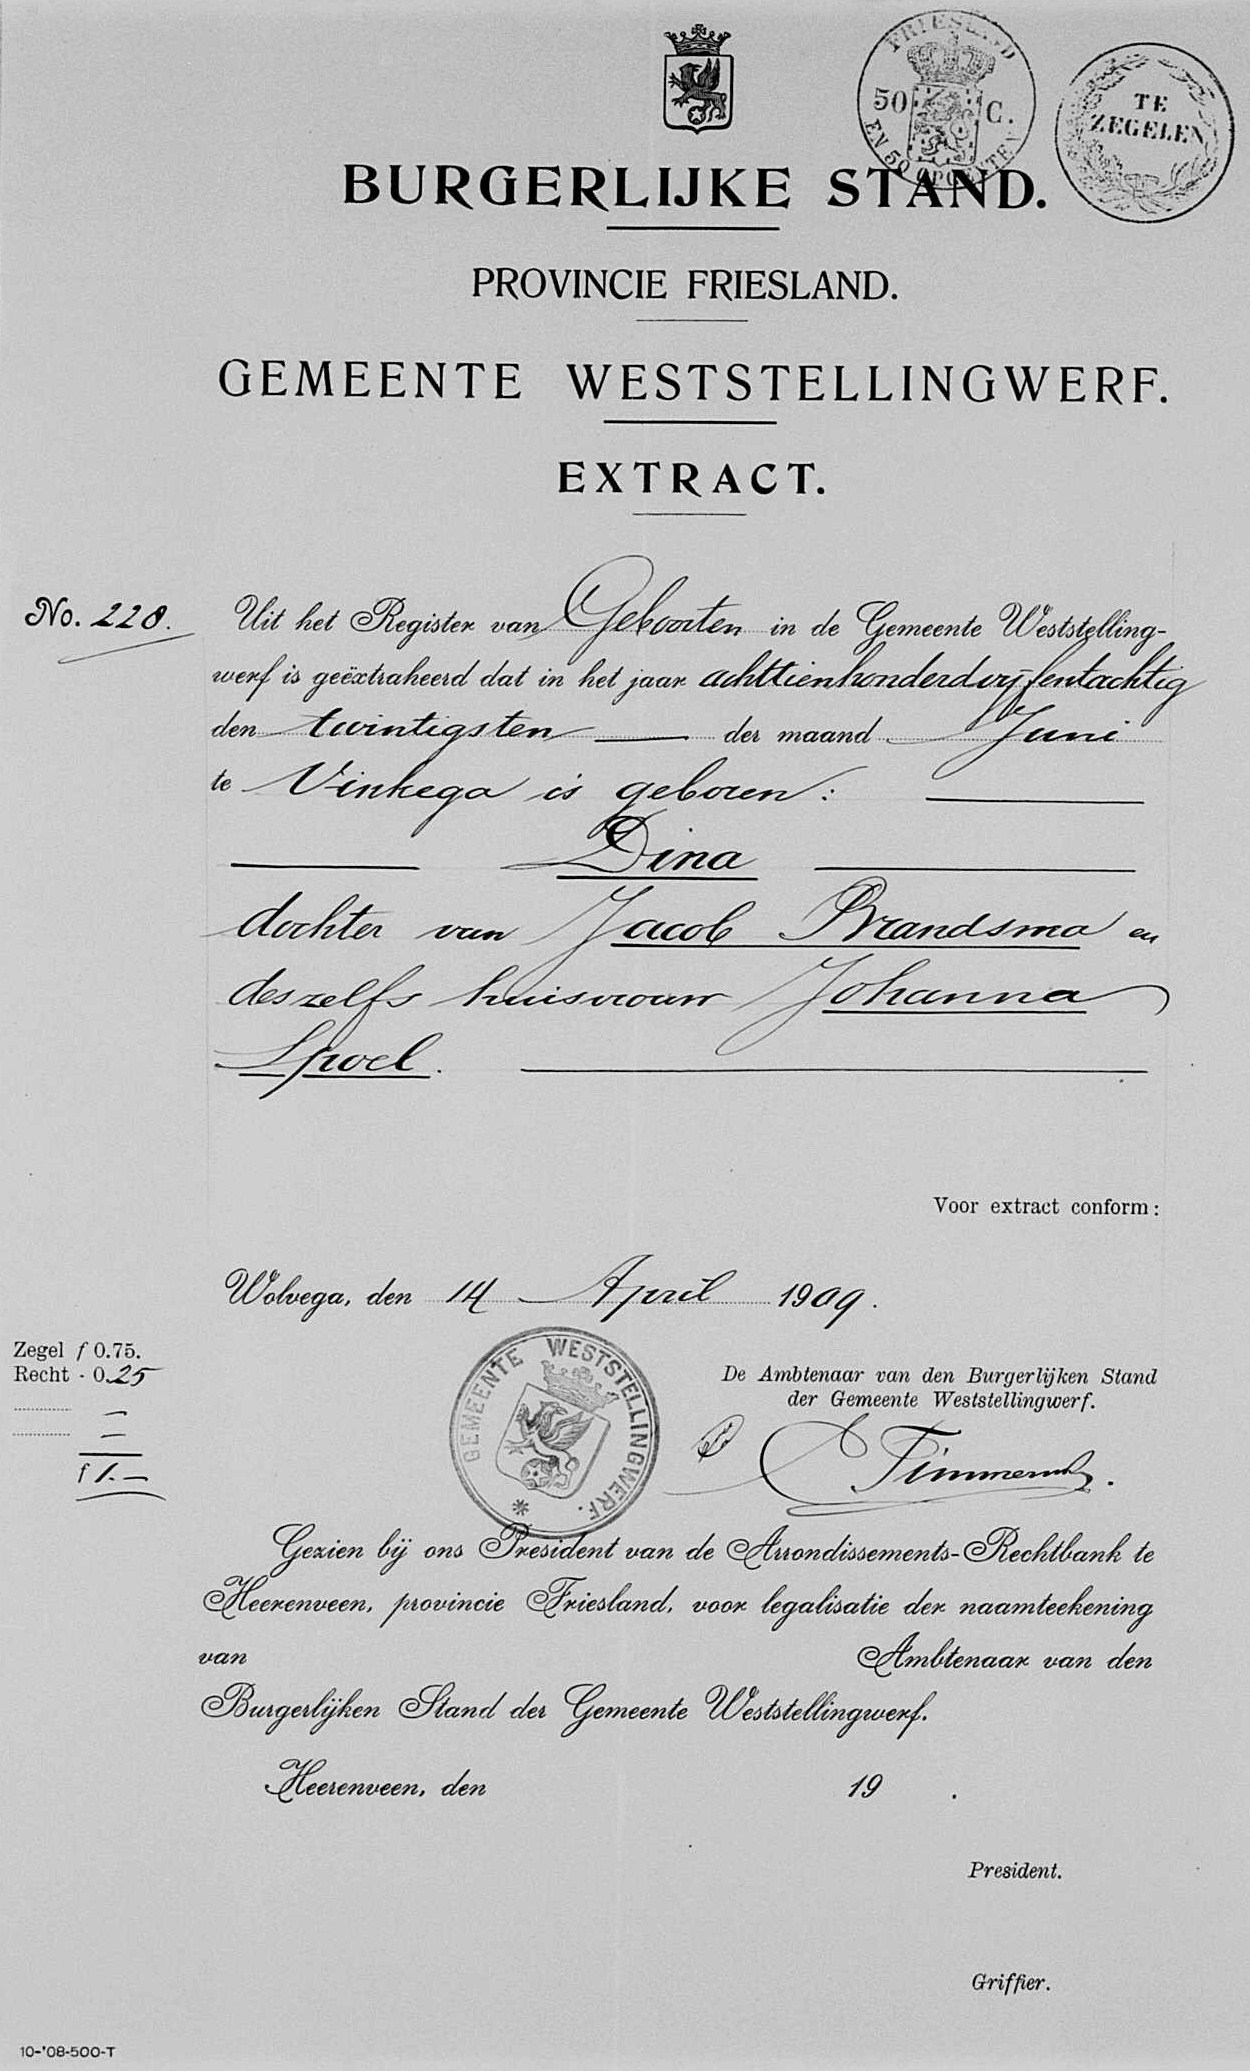 FRIESLAND
50 C.
EN 50 OPCENTEN
TE
ZEGELEN
BURGERLIJKE STAND.
PROVINCIE FRIESLAND.
GEMEENTE WESTSTELLINGWERF.
EXTRACT.
No. 228. Uit het Register van Geboorten in de Gemeente Weststelling-
werf is geëxtraheerd dat in het jaar achttienhonderdvijfentachtig
den twintigsten der maand Juni
te Vinkega is geboren:
Dina
dochter van Jacob Brandsma en
deszelfs huisvrouw Johanna
Spoel.
Voor extract conform:
Wolvega, den 14 April 1909.
Zegel f 0.75.
Recht - 0.25
f 1.—
GEMEENTE WESTSTELLINGWERF.
De Ambtenaar van den Burgerlijken Stand
der Gemeente Weststellingwerf.
Gezien bij ons President van de Arrondissements-Rechtbank te
Heerenveen, provincie Friesland, voor legalisatie der naamteekening
van Ambtenaar van den
Burgerlijken Stand der Gemeente Weststellingwerf.
Heerenveen, den 19 .
President.
Griffier.
10-'08-500-T